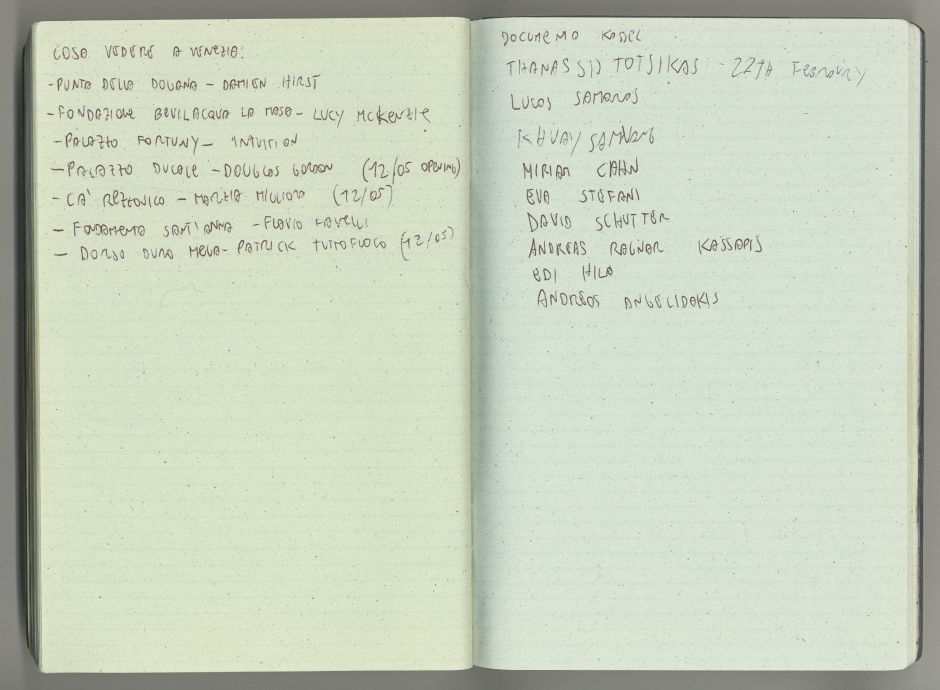 COSA VEDERE A VENEZIA:
- PUNTA DELLA DOGANA - DAMIEN HIRST
- FONDAZIONE BEVILACQUA LA MASA - LUCY MCKENZIE
- PALAZZO FORTUNY - INTUITION
- PALAZZO DUCALE - DOUGLAS GORDON (12/05 OPENING)
- CA' REZZONICO - MARZIA MIGLIORA (12/05)
- FONDAMENTA SANT'ANNA - FLAVIO FAVELLI
- DORSO DURO - PATRICK TUTTOFUOCO (12/05)
DOCUMENTA KASSEL
THANASSIS TOTSIKAS - 22TH
LUCAS SAMARAS
KHVAY SAMNANG
MIRIAM CAHN
EVA STEFANI
DAVID SCHUTTER
ANDREAS RAGNAR KASSAPIS
EDI HILA
ANDREAS ANGELIDAKIS